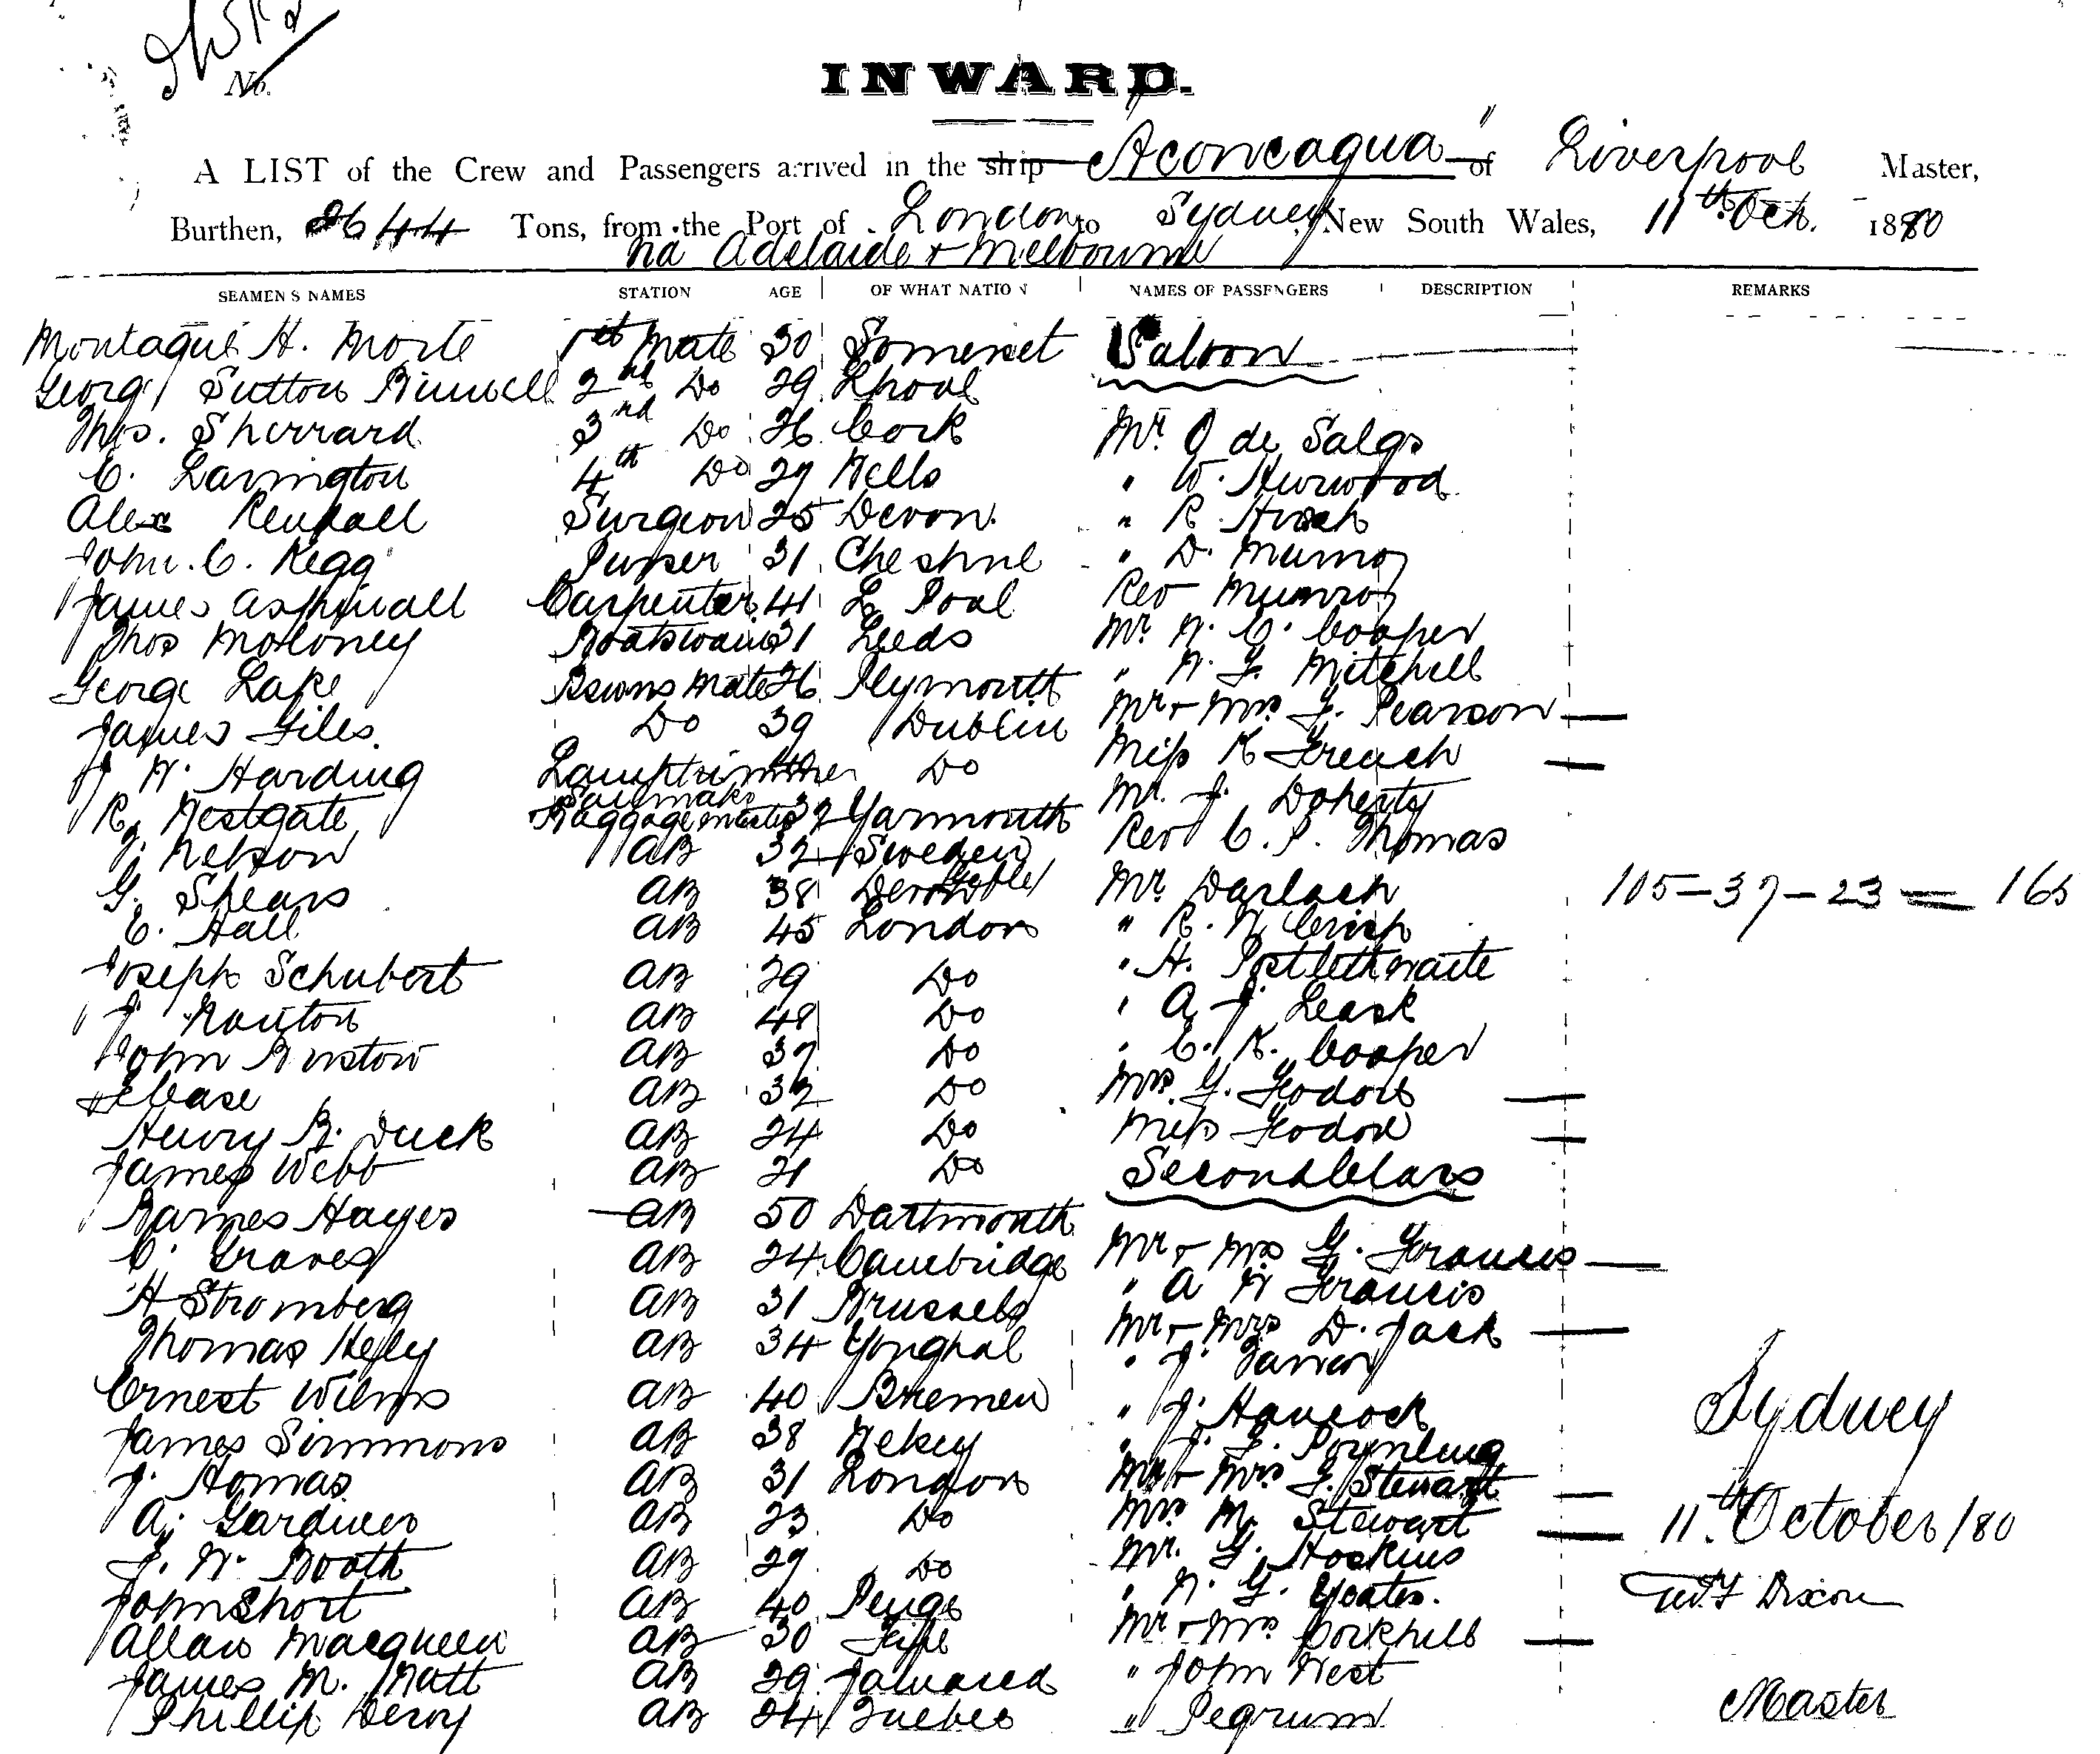 No.
INWARD.
A LIST of the Crew and Passengers arrived in the ship "Aconcagua" of Liverpool Master,
Burthen, 2644 Tons, from the Port of London to Sydney New South Wales, 11th Oct. 1880
via Adelaide & Melbourne
SEAMENS NAMES STATION AGE OF WHAT NATION NAMES OF PASSENGERS DESCRIPTION REMARKS
Montague H. 1st Mate 30 Somerset Saloon
George Sutton 2nd Do 29 Lpool
Thos. Sherrard 3rd Do 26 Cork Mr. O de Salis
C. Lavington 4th Do 27 Wells " W. Hurwood
Alex Kendall Surgeon 25 Devon. " R.
John. C. Kegg Purser 31 Cheshire " D. Munro
James Aspinall Carpenter 41 L Pool Rev Munro
Thos Moloney Boatswain 31 Leeds Mr. W. C. Cooper
George Lake Bswns Mate 26 Plymouth " W. F. Mitchell
James Giles. Do 39 Dublin Mr & Mrs F. Pearson
J W. Harding Lamptrimmer Do Miss K French
R. Westgate Sailmaker Baggagemaster 32 Yarmouth Mr. J. Doherty
Nelson AB 32 Sweden Rev C. P. Thomas
G. Shears AB 38 Mr Darlach 105-37-23 = 165
C. Hall AB 45 London " R. W Crisp
Joseph Schubert AB 29 Do " H. Postlethwaite
J Nauton AB 48 Do " A J Leask
John Burstow AB 37 Do " C. K. Cooper
Case AB 32 Do Mrs. G. Fodor
Henry R. Duck AB 24 Do Miss Fodor
James Webb AB 21 Do Second Class
Barnes Hayes AB 50 Dartmouth
C. Graves AB 24 Cambridge Mr & Mrs G. Francis
H Stromberg AB 31 Brussels " A W Francis
Thomas Hefly AB 34 Yonghal Mr & Mrs D. Jack
" J.
Ernest Wilms AB 40 Bremen " J. Hancock Sydney
James Simmons AB 38 " J. F.
J. Homas AB 31 London Mr & Mrs J. Stewart
A. Gardiner AB 23 Do Mrs M. Stewart 11th October/80
J. W. Booth AB 29 Do Mr. G. Hoskins
John Short AB 40 Penge " W. G. Yeates. Dixon
Allan Macqueen AB 30 Fife Mr & Mrs Corkhill
James M. Watt AB 29 " John West
Phillip Deroy AB 24 Quebec " Pegrum Master